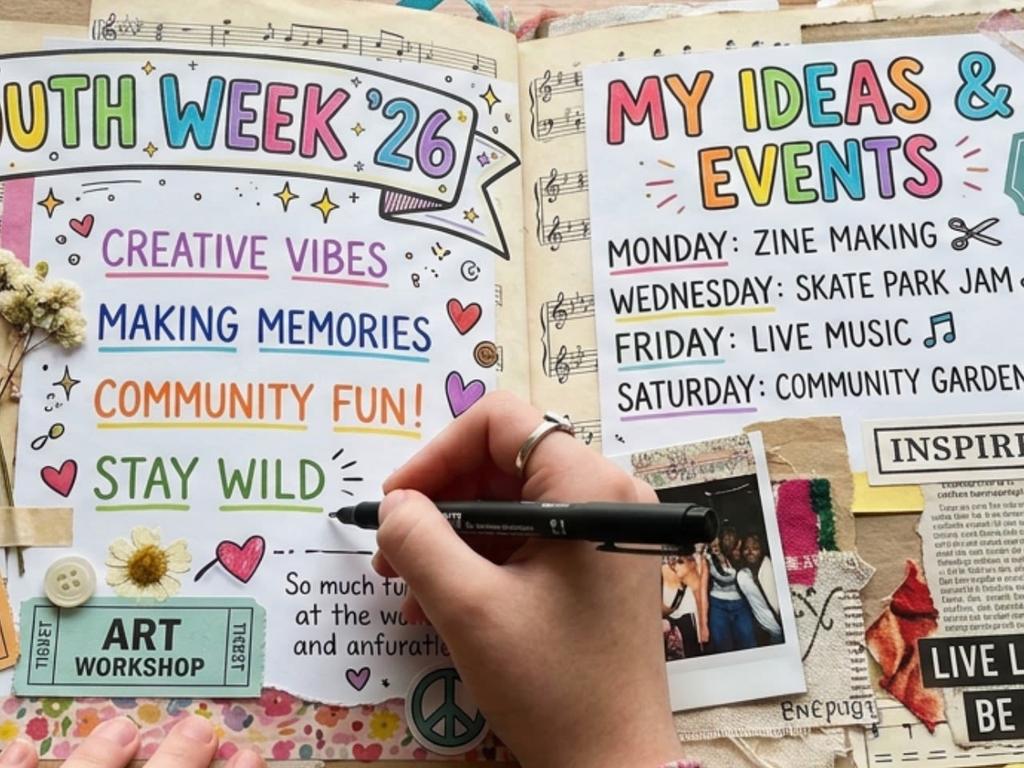 OUTH WEEK '26
CREATIVE VIBES
MAKING MEMORIES
COMMUNITY FUN!
STAY WILD
So much fu
at the wo
and anfuratle
ART
WORKSHOP
MY IDEAS &
EVENTS
MONDAY: ZINE MAKING
WEDNESDAY: SKATE PARK JAM
FRIDAY: LIVE MUSIC
SATURDAY: COMMUNITY GARDEN
INSPIRE
LIVE L
BE